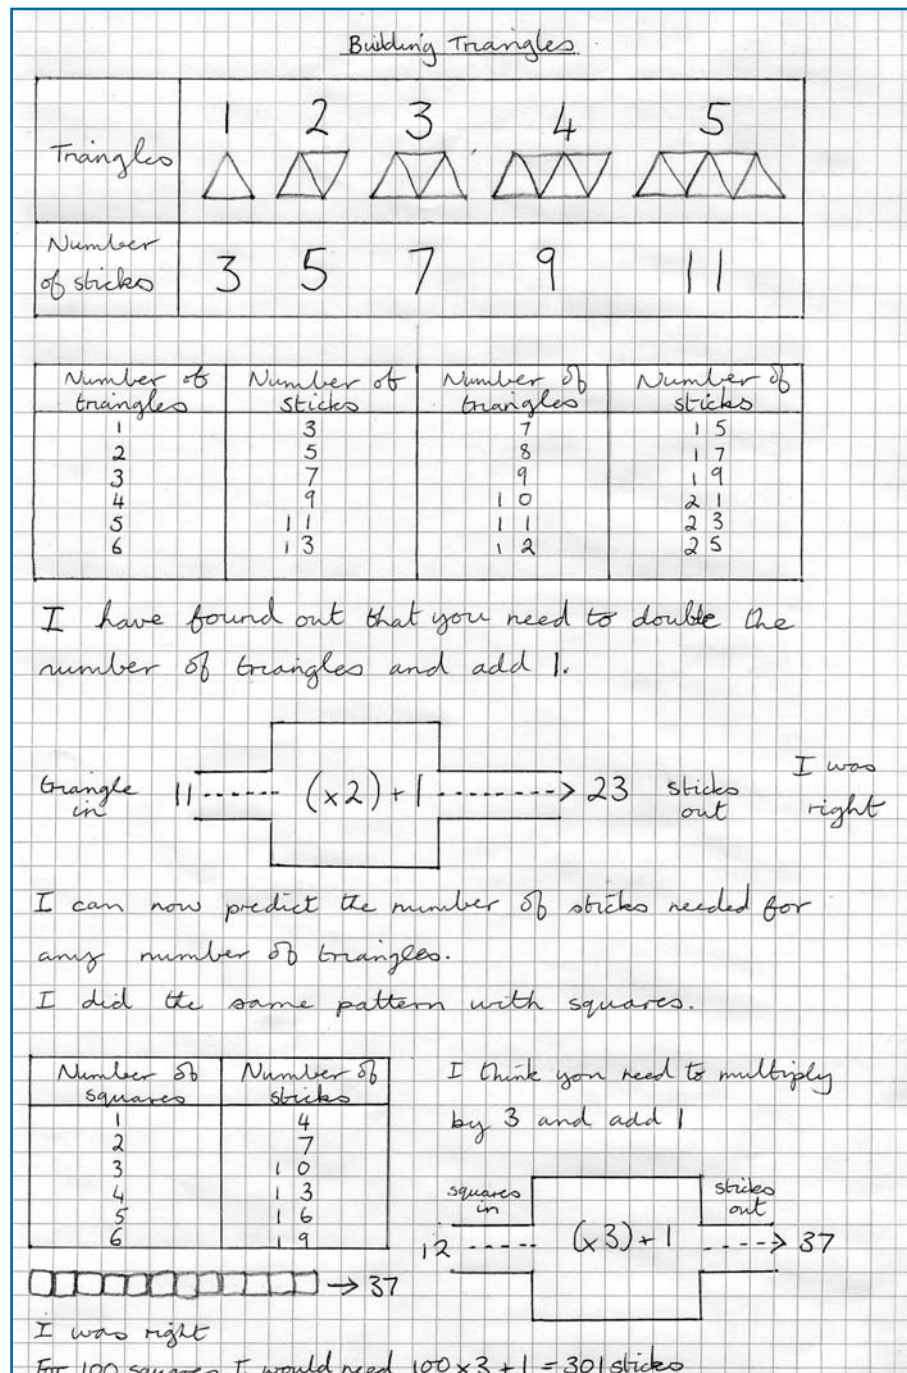 Building Triangles
1 2 3 4 5
Triangles
Number
of sticks
3 5 7 9 11
Number of triangles Number of sticks Number of triangles Number of sticks
1 3 7 15
2 5 8 17
3 7 9 19
4 9 10 21
5 11 11 23
6 13 12 25
I have found out that you need to double the
number of triangles and add 1.
triangle in 11 (x2)+1 23 sticks out I was right
I can now predict the number of sticks needed for
any number of triangles.
I did the same pattern with squares.
Number of squares Number of sticks
1 4
2 7
3 10
4 13
5 16
6 19
I think you need to multiply
by 3 and add 1
squares in sticks out
12 (x3)+1 37
→ 37
I was right
For 100 squares I would need 100 x 3 + 1 = 301 sticks